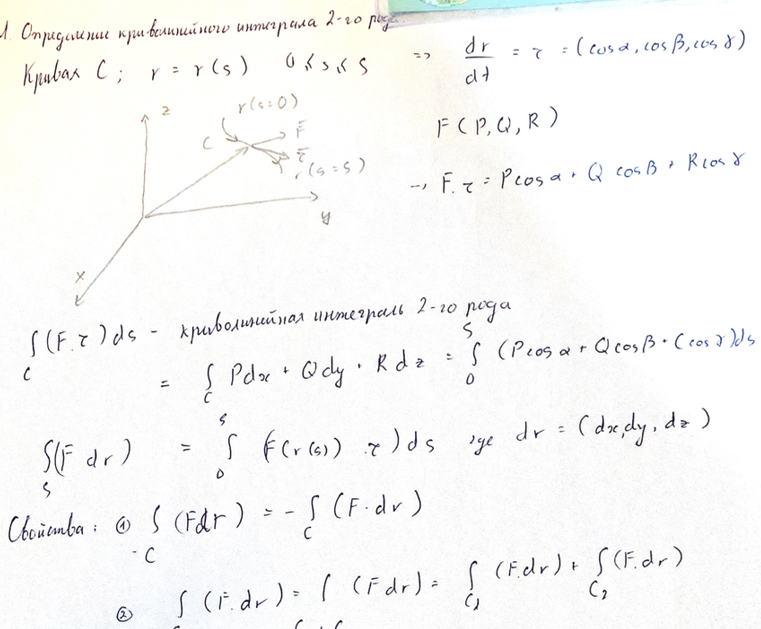 1. Определение криволинейного интеграла 2-го рода
Кривая C; r = r(s) 0 ≤ s ≤ S => dr/dt = τ = (cosα, cosβ, cosγ)
z
r(s=0)
C F̄
τ̄
r(s=S)
y
x
F(P,Q,R)
→ F·τ = Pcosα + Q cosβ + R cosγ
∫_C (F·τ)ds - криволинейная интеграль 2-го рода
= ∫_C Pdx + Qdy + Rdz = ∫_0^S (Pcosα + Qcosβ + Ccosγ)ds
∫_S (F dr) = ∫_0^S F(r(s))·τ)ds где dr = (dx,dy,dz)
Свойства: ① ∫_-C (Fdr) = -∫_C (F·dr)
② ∫ (F·dr) = ∫ (Fdr) = ∫_C₁ (F·dr) + ∫_C₂ (F·dr)